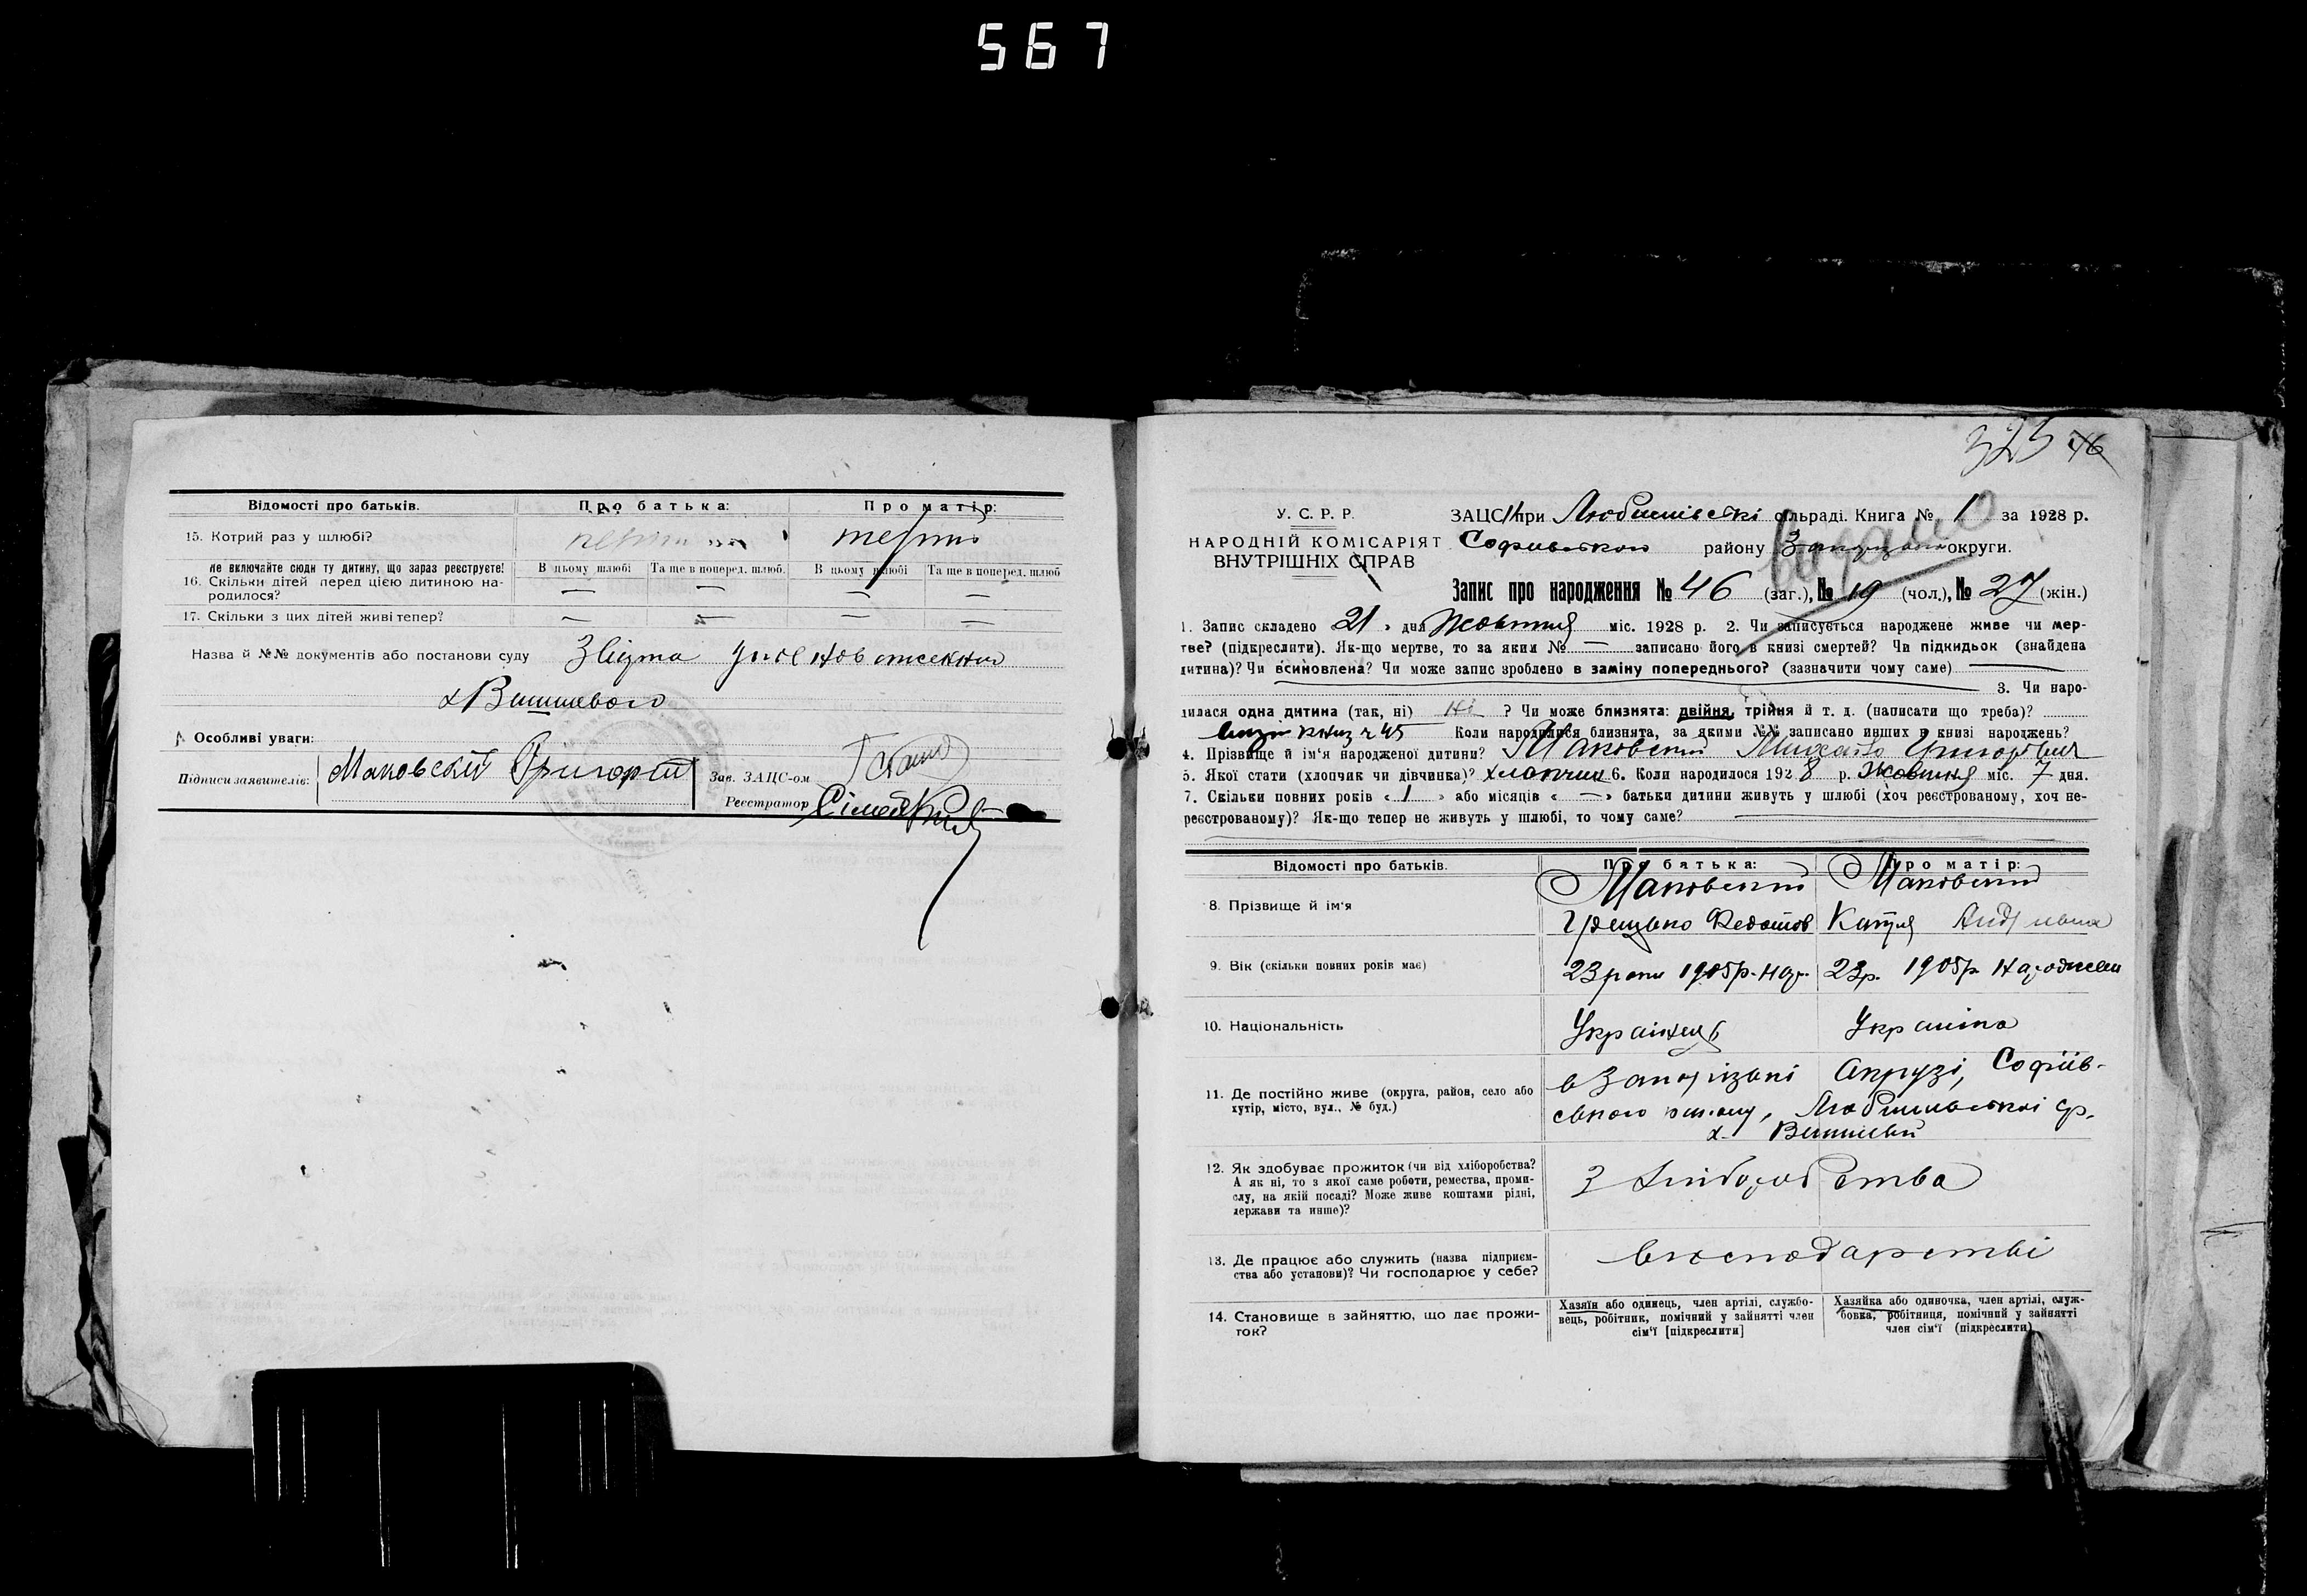 567
Відомості про батьків. Про батька: Про матір:
15. Котрий раз у шлюбі? перший перший
не включайте сюди ту дитину, що зараз реєструєте!
16. Скільки дітей перед цією дитиною на-
родилося?
В цьому шлюбі Та ще в поперед. шлюб. В цьому шлюбі Та ще в поперед. шлюб
— — — —
17. Скільки з цих дітей живі тепер? — — — —
Назва й №№ документів або постанови суду
х Вишневого
Особливі уваги:
Підписи заявителів: Маковский Григорий Зав. ЗАЦС-ом
Реєстратор
325 46
У. С. Р. Р.
НАРОДНІЙ КОМІСАРІЯТ
ВНУТРІШНІХ СПРАВ
ЗАЦС при Любимівські сільраді. Книга № 1 за 1928 р.
Софиевского району округи.
видано
Запис про народження № 46 (заг.), № 19 (чол.), № 27 (жін.)
1. Запис складено «21» дня Жовтня міс. 1928 р. 2. Чи записується народжене живе чи мер-
тве? (підкреслити). Як-що мертве, то за яким № — записано його в книзі смертей? Чи підкидьок (знайдена
дитина)? Чи всиновлена? Чи може запис зроблено в заміну попереднього? (зазначити чому саме)
3. Чи наро-
дилася одна дитина (так, ні) ні ? Чи може близнята: двійня, трійня й т. д. (написати що треба)?
45 Коли народилися близнята, за якими №№ записано инших в книзі народжень?
4. Прізвище й ім'я народженої дитини? Маковский Михайло Григорович
5. Якої стати (хлопчик чи дівчинка)? хлопчик 6. Коли народилося 1928 р. Жовтня міс. 7 дня.
7. Скільки повних років «1» або місяців «—» батьки дитини живуть у шлюбі (хоч реєстрованому, хоч не-
реєстрованому)? Як-що тепер не живуть у шлюбі, то чому саме?
Відомості про батьків. Про батька: Про матір:
8. Прізвище й ім'я Маковский Маковский
Федотов Катря Андріевна
9. Вік (скільки повних років має) 23 роки 1905р. нар. 23р. 1905р народжен
10. Національність Українець Українка
11. Де постійно живе (округа, район, село або
хутір, місто, вул., № буд.)
в Запорізькі Окрузі, Софіїв-
ського району, Любимівської с/р.
х. Вишневий
12. Як здобуває прожиток (чи від хліборобства?
А як ні, то з якої саме роботи, ремества, проми-
слу, на якій посаді? Може живе коштами рідні,
держави та инше)?
З хліборобства
13. Де працює або служить (назва підприєм-
ства або установи)? Чи господарює у себе?
в господарстві
14. Становище в зайняттю, що дає прожи-
ток?
Хазяїн або одинець, член артілі, службо-
вець, робітник, помічний у зайнятті член
сім'ї [підкреслити]
Хазяйка або одиночка, член артілі, служ-
бовка, робітниця, помічний у зайнятті
член сім'ї (підкреслити)